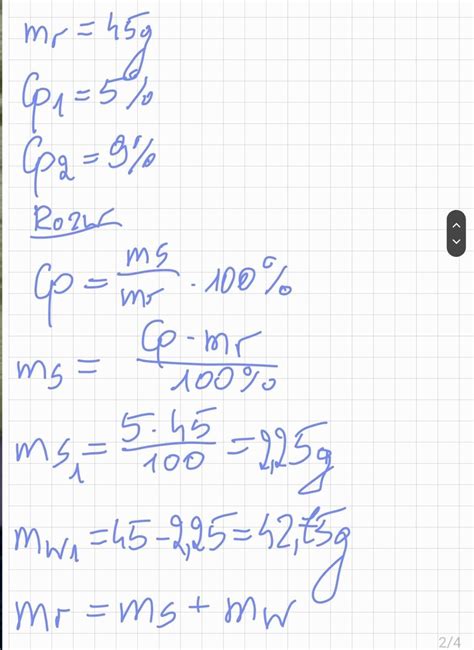 mr = 45g
Cp1 = 5%
Cp2 = 9%
Rozw
Cp = ms/mr · 100%
ms = Cp · mr/100%
ms1 = 5 · 45/100 = 2,25g
mw1 = 45 - 2,25 = 42,75g
mr = ms + mw
2/4